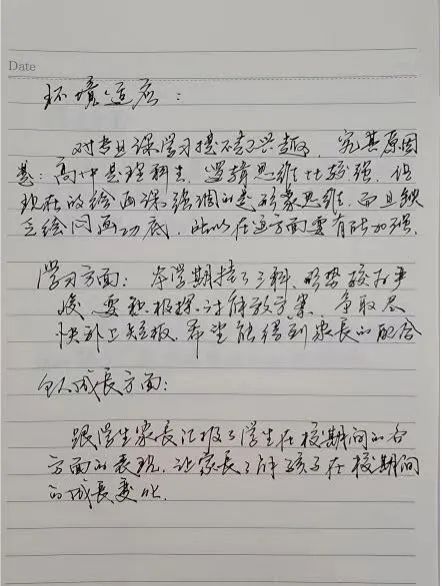 Date
环境适应:
对专业课学习提不起兴趣, 究其原因
是: 高中是理科生, 逻辑思维比较强, 但
现在的绘画课强调的是形象思维, 而且缺
乏绘画功底, 所以在这方面要有所加强.
学习方面: 本学期挂了三科, 形势较为严
峻, 要积极探讨解放方案, 争取尽
快补上短板, 希望能得到家长的配合
个人成长方面:
跟学生家长汇报了学生在校期间的各
方面的表现, 让家长了解孩子在校期间
的成长变化.